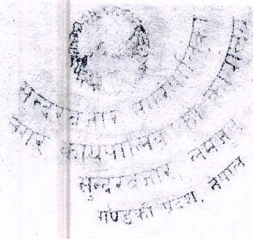 सुन्दरबजार नगरपालिका
नगर कार्यपालिकाको कार्यालय
सुन्दरबजार, लमजुङ
गण्डकी प्रदेश, नेपाल